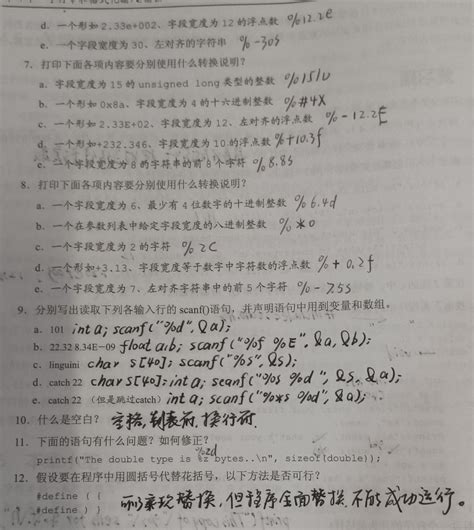 d. 一个形如 2.33e+002、字段宽度为 12 的浮点数 %12.2e
e. 一个字段宽度为 30、左对齐的字符串 %-30s
7. 打印下面各项内容要分别使用什么转换说明？
a. 字段宽度为 15 的 unsigned long 类型的整数 %15lu
b. 一个形如 0x8a、字段宽度为 4 的十六进制整数 %#4X
c. 一个形如 2.33E+02、字段宽度为 12、左对齐的浮点数 %-12.2E
d. 一个形如+232.346、字段宽度为 10 的浮点数 %+10.3f
e. 一个字段宽度为 8 的字符串的前 8 个字符 %8.8s
8. 打印下面各项内容要分别使用什么转换说明？
a. 一个字段宽度为 6、最少有 4 位数字的十进制整数 %6.4d
b. 一个在参数列表中给定字段宽度的八进制整数 %*o
c. 一个字段宽度为 2 的字符 %2C
d. 一个形如+3.13、字段宽度等于数字中字符数的浮点数 %+0.2f
e. 一个字段宽度为 7、左对齐字符串中的前 5 个字符 %-7.5s
9. 分别写出读取下列各输入行的 scanf()语句，并声明语句中用到变量和数组。
a. 101 int a; scanf("%d", &a);
b. 22.32 8.34E-09 float a,b; scanf("%f %E", &a, &b);
c. linguini char s[40]; scanf("%s", &s);
d. catch 22 char s[40]; int a; scanf("%s %d", &s, &a);
e. catch 22 （但是跳过catch） int a; scanf("%*s %d", &a);
10. 什么是空白？ 空格, 制表符, 换行符.
11. 下面的语句有什么问题？如何修正？
%zd
printf("The double type is %z bytes..\n", sizeof(double));
12. 假设要在程序中用圆括号代替花括号，以下方法是否可行？
#define ( {
#define ) }
替换, 但程序全面替换, 不能成功运行。